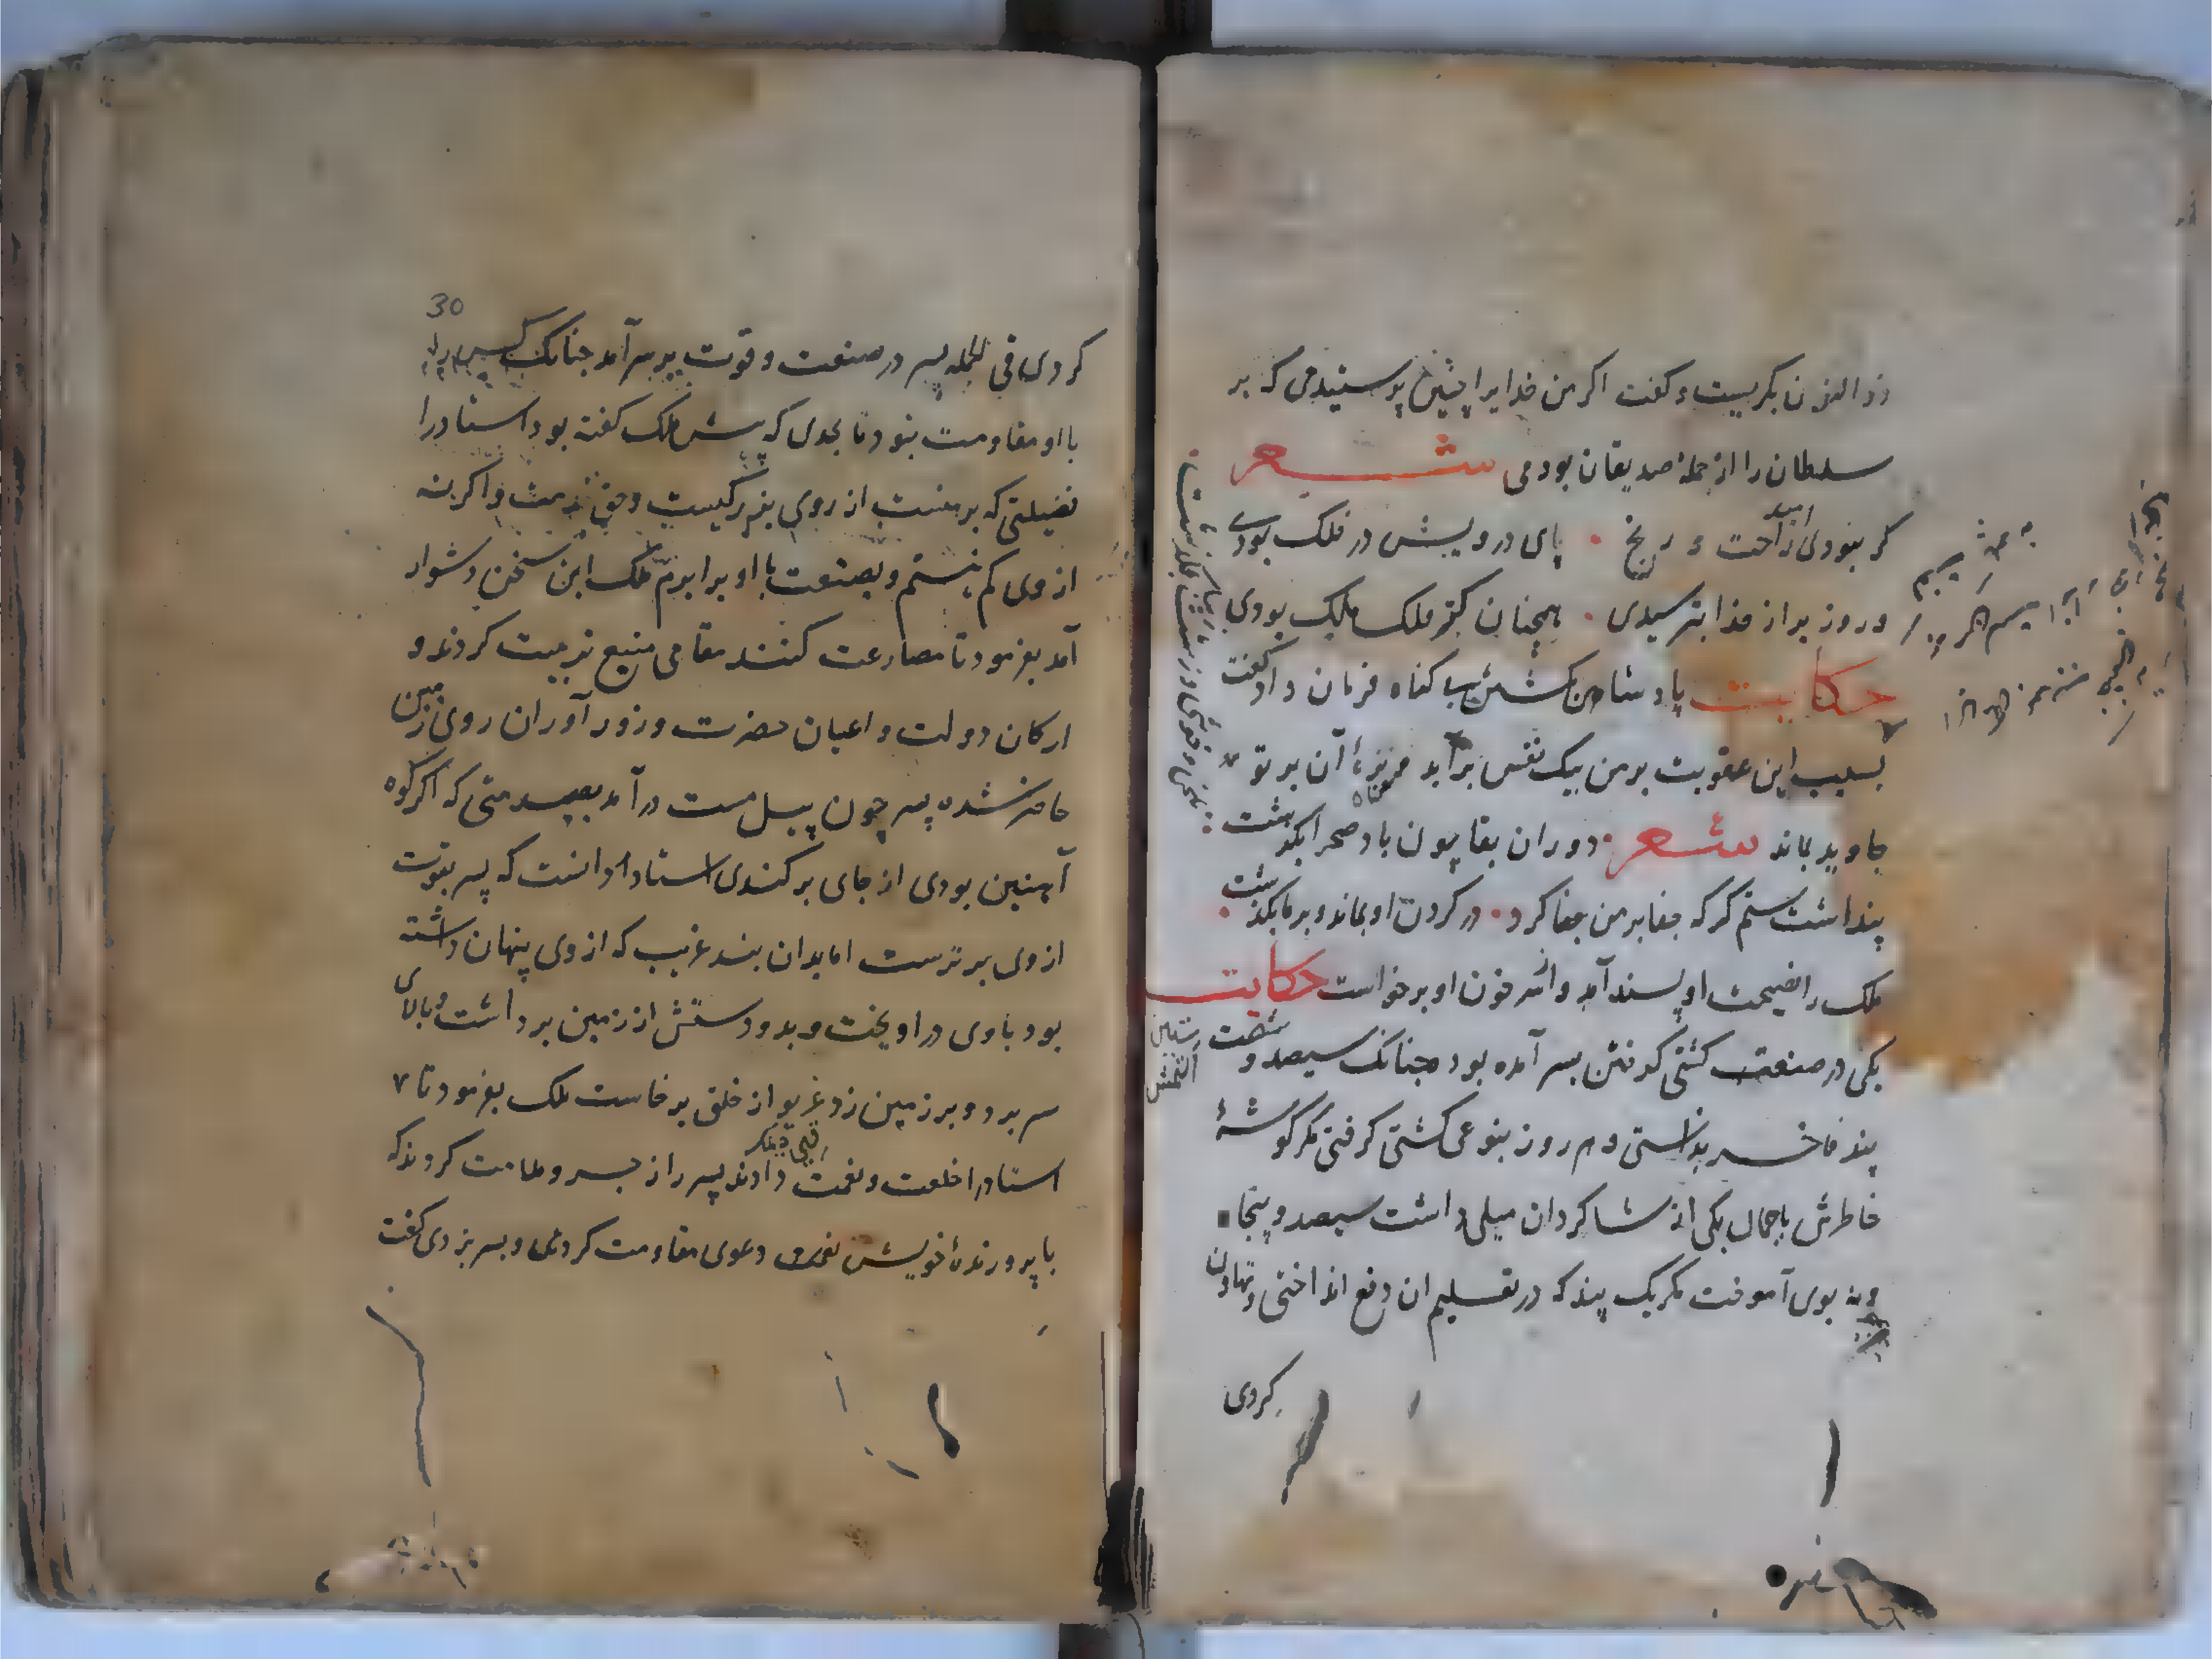 ذوالنون بگریست و گفت اگر من خدایرا چنین پرستیدمی که بر
سلطان را از جمله صدیقان بودمی شعر
گر نبودی امید راحت و رنج پای درویش در فلک بودی
ور وزیر از خدا بترسیدی همچنان کز ملک ملک بودی
حکایت پادشاهی بکشتن بی کناه فرمان داد گفت
بسبب این عقوبت بر من بیک نفس برآید و بزه آن بر تو
جاوید بماند شعر دوران بقا چون باد صحرا بگذشت
تلخی و خوشی و زشت و زیبا بگذشت
پنداشت ستم گر که جفا بر من جفا کرد در گردن او بماند و بر ما بگذشت
ملک را نصیحت او پسند آمد و از سر خون او برخواست حکایت
یکی در صنعت کشتی گرفتن بسر آمده بود چنانک سیصد و شصت
بند فاخر بدانستی و هر روز بنوعی کشتی گرفتی مگر گوشهٔ
خاطرش با جمال یکی از شاگردان میلی داشت سیصد و پنجاه
و نه بوی آموخت مگر یک بند که در تعلیم ان دفع انداختی و تهاون
کردی
30
کردی فی الجمله پسر در صنعت و قوت بر سر آمد چنانک کسی را
با او مقاومت نبود تا بحدی که پیش ملک گفته بود استاد را
فضیلتی که بر منست از روی بزرگیست و حق تربیت و اگر نه
از وی کم نیستم و بصنعت با او برابرم ملک این سخن دشوار
آمد بفرمود تا مصارعت کنند مقامی منیع تربیت کردند و
ارکان دولت و اعیان حضرت و زور آوران روی زمین
حاضر شده پسر چون پیل مست درآمد بصدمتی که اگر کوه
آهنین بودی از جای برکندی استاد دانست که پسر بقوت
از وی برترست اما بدان بند غریب که از وی پنهان داشته
بود با وی در اویخت و بدو دستش از زمین برداشت و بالای
سر برد و بر زمین زد غریو از خلق برخاست ملک بفرمود تا
استاد را خلعت و نعمت دادند پسر را زجر و ملامت کردند که
با پرورندهٔ خویش دعوی مقاومت کردی و بسر نبردی گفت